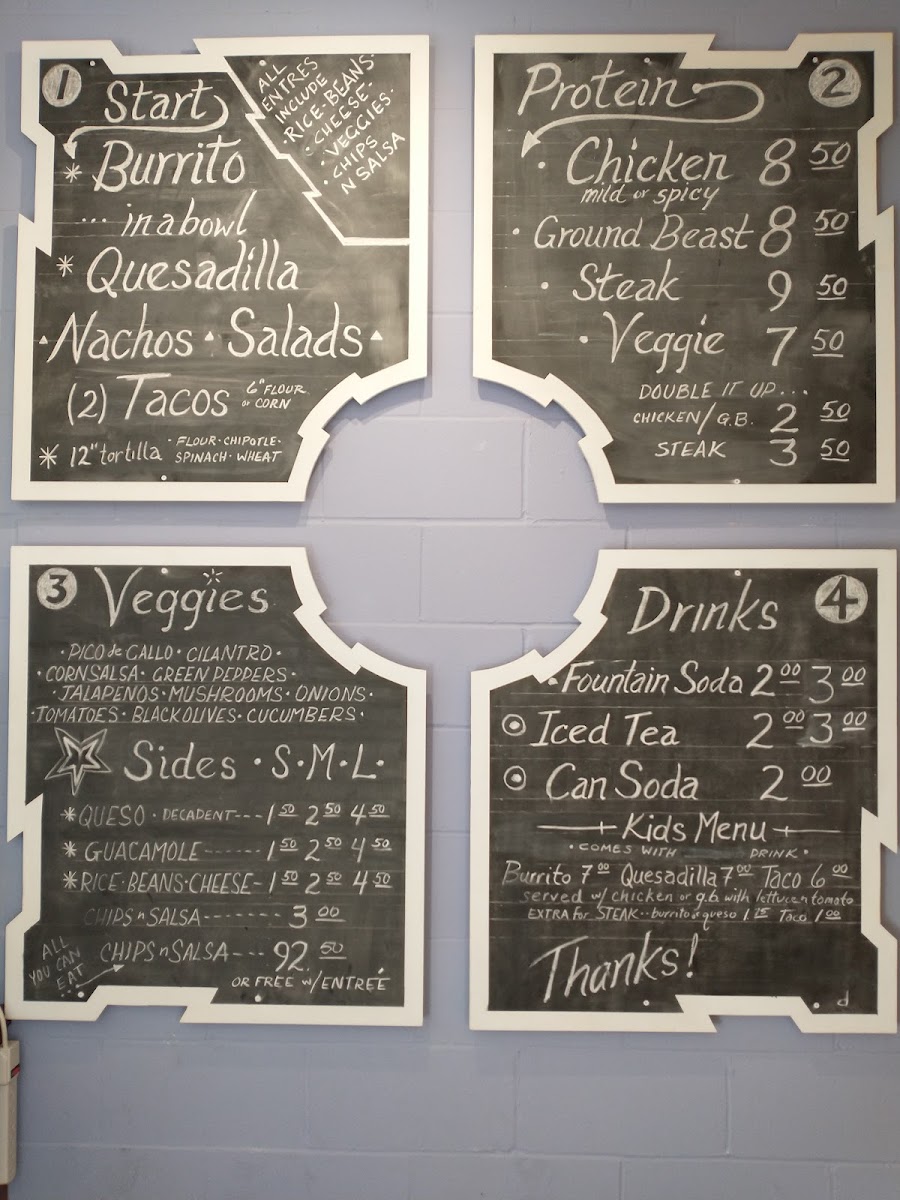 1
Start
* Burrito
... in a bowl
* Quesadilla
• Nachos • Salads •
(2) Tacos 6" FLOUR
or CORN
* 12" tortilla • FLOUR • CHIPOTLE •
SPINACH • WHEAT
ALL
ENTRES
INCLUDE
• RICE • BEANS •
• CHEESE •
• VEGGIES •
• CHIPS
N SALSA
Protein 2
• Chicken 8 50
mild or spicy
• Ground Beast 8 50
• Steak 9 50
• Veggie 7 50
DOUBLE IT UP...
CHICKEN/G.B. 2 50
STEAK 3 50
3 Veggies
• PICO de GALLO • CILANTRO •
• CORN SALSA • GREEN PEPPERS •
• JALAPEÑOS • MUSHROOMS • ONIONS •
• TOMATOES • BLACK OLIVES • CUCUMBERS •
Sides • S • M • L •
* QUESO • DECADENT --- 1 50 2 50 4 50
* GUACAMOLE ------- 1 50 2 50 4 50
* RICE • BEANS • CHEESE - 1 50 2 50 4 50
CHIPS n SALSA -------- 3 00
ALL
YOU CAN
EAT
CHIPS n SALSA --- 92. 50
OR FREE w/ ENTREÉ
Drinks 4
• Fountain Soda 2 00 3 00
Iced Tea 2 00 3 00
Can Soda 2 00
Kids Menu
• COMES WITH DRINK •
Burrito 7 00 Quesadilla 7 00 Taco 6 00
served w/ chicken or g.b. with lettuce n tomato
EXTRA for STEAK •• burrito or queso 1 75 Taco 1 00
Thanks!
d